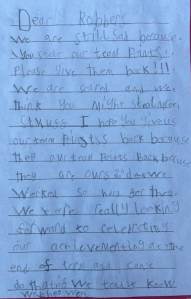 Dear Robbers
We are still sad because
you stole our team points.
Please give them back!!!
We are scared and we
think you might steal more
I hope you give us
our team points back because
they our team points back because
they are ours and we
worked so hard for them.
We were really looking
forward to celebrating
our achievements at the
end of term and
do that we know